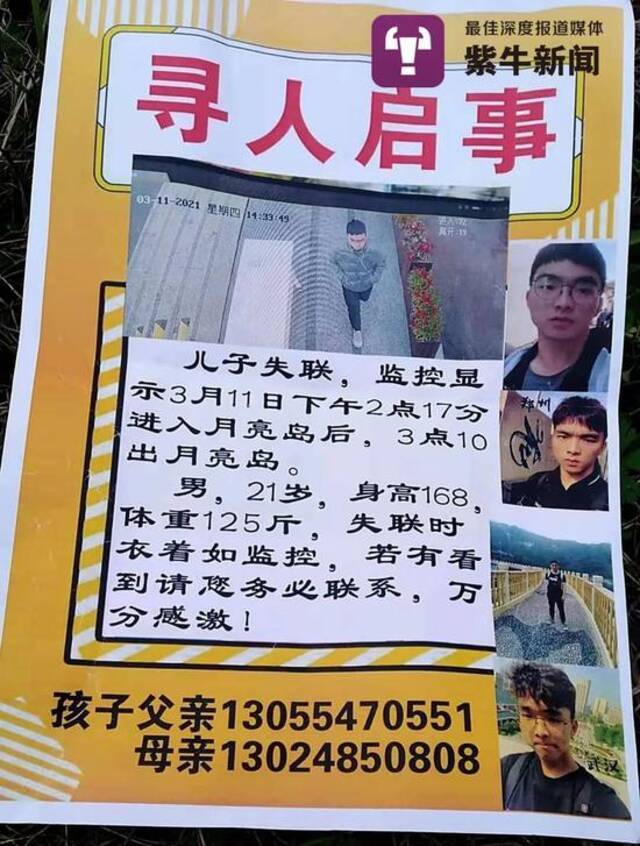 最佳深度报道媒体
紫牛新闻
寻人启事
03-11-2021 星期四 14:33:49
儿子失联，监控显
示3月11日下午2点17分
进入月亮岛后，3点10
出月亮岛。
男，21岁，身高168，
体重125斤，失联时
衣着如监控，若有看
到请您务必联系，万
分感激！
武汉
孩子父亲13055470551
母亲13024850808